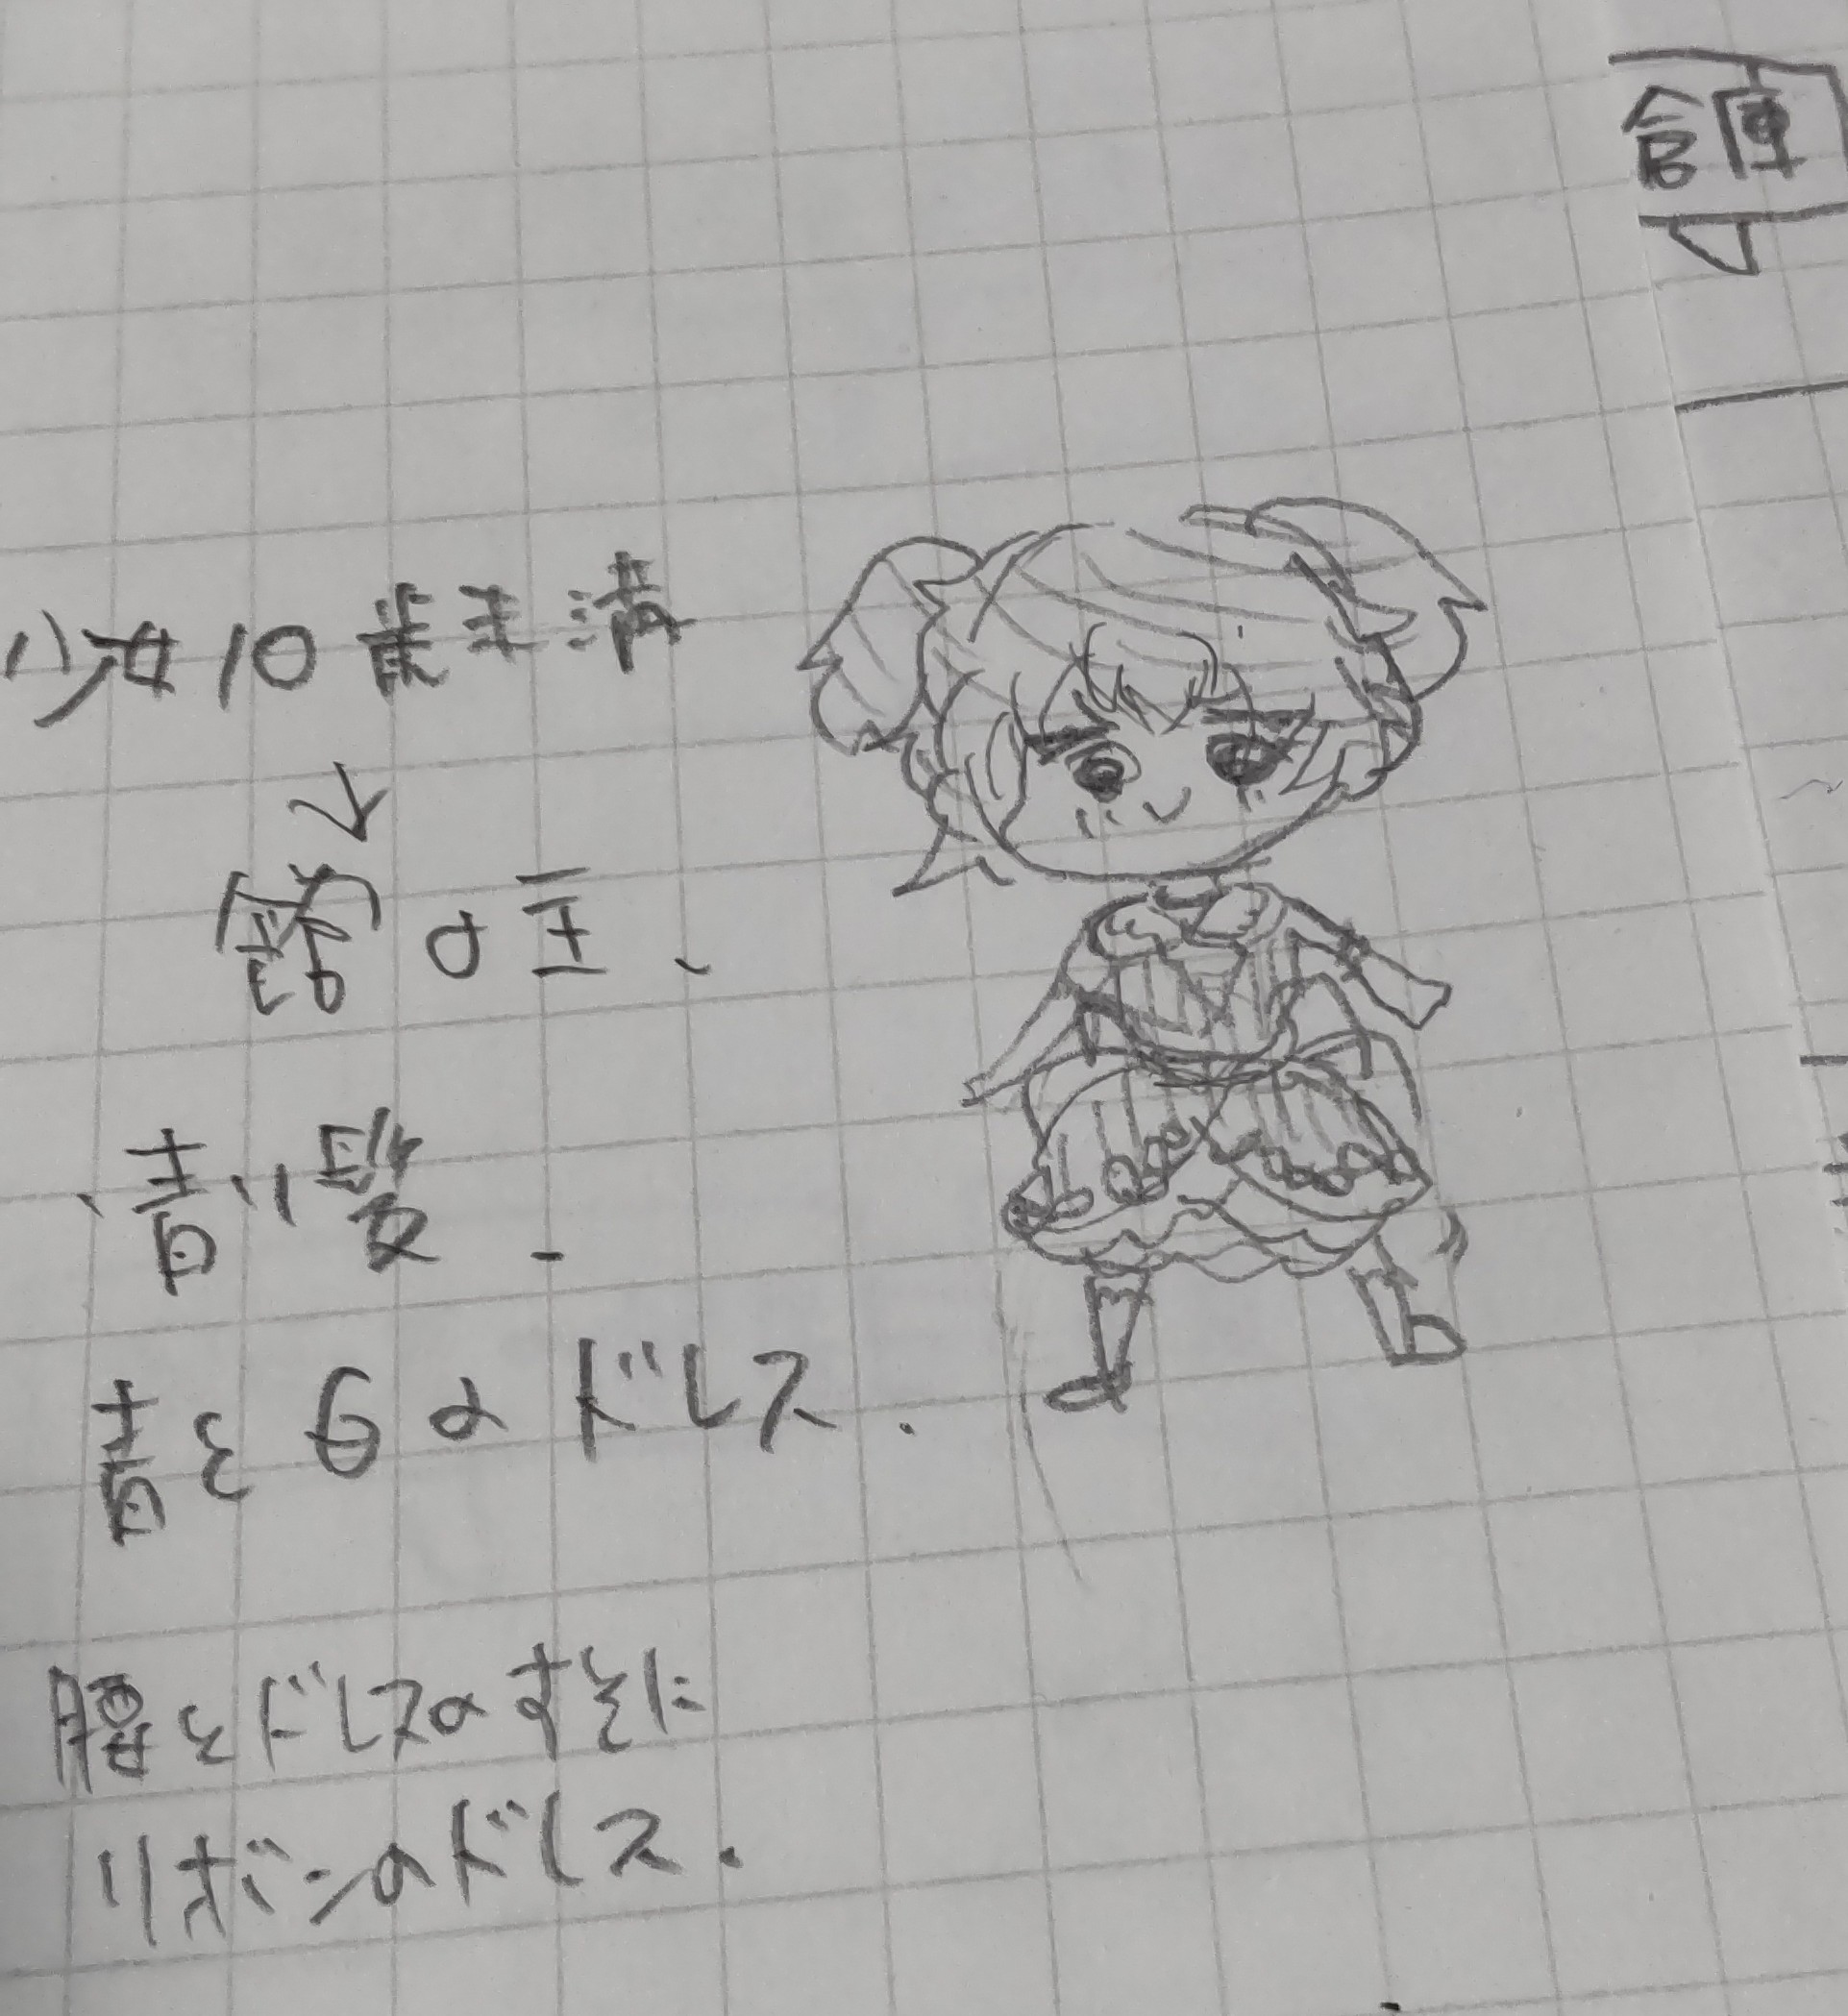 少女10歳未満
↓
館の主、
青い髪.
青と白のドレス.
腰とドレスのすそに
リボンのドレス.
倉庫